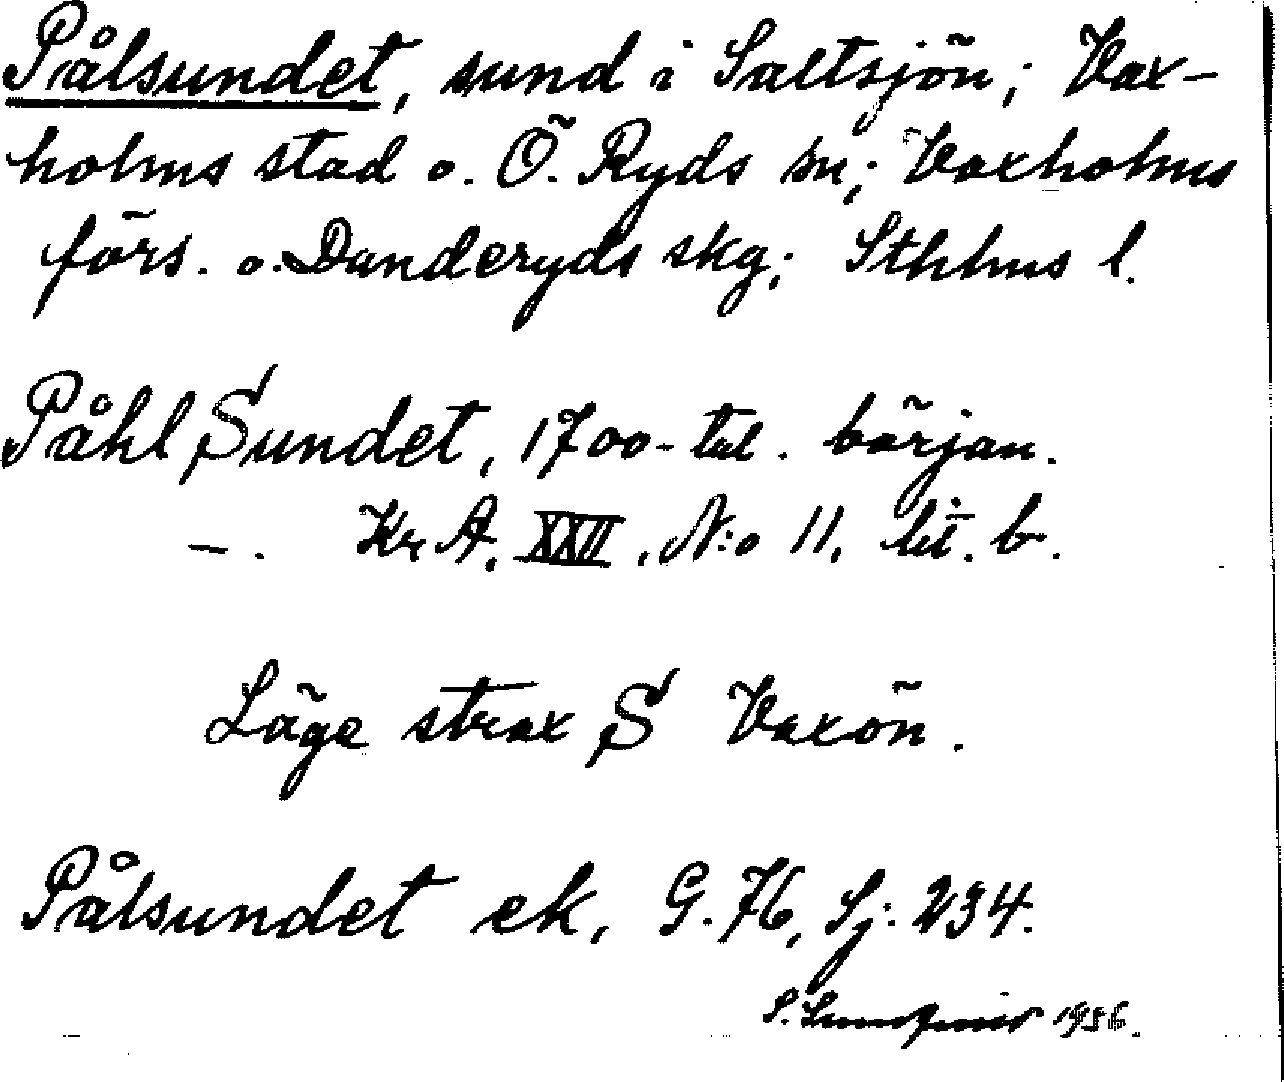 Pålsundet, sund i Saltsjön; Vax-
holms stad o. Ö. Ryds sn; Vaxholms
förs. o. Danderyds skg; Sthlms l.
Påhl Sundet, 1700-tal. början.
—. Kr A. XXII. N:o 11, lit. b.
Läge strax S Vaxön.
Pålsundet ek, G. 76, Sj: 234.
S. 1936.